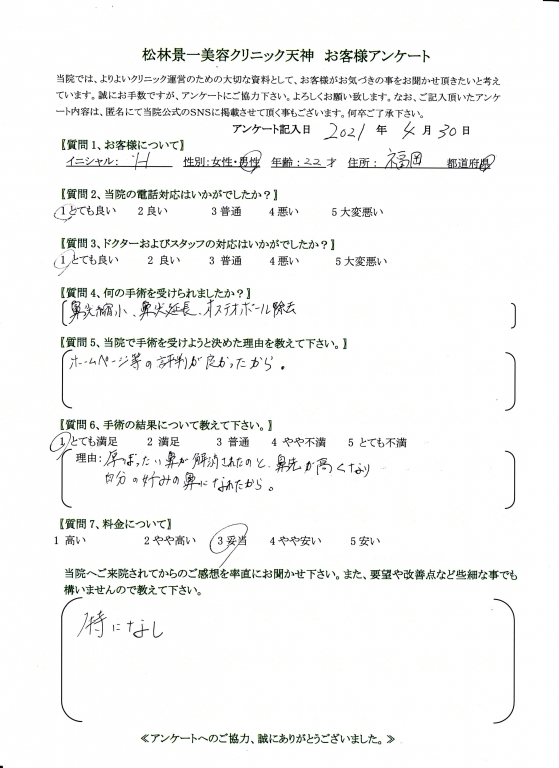 松林景一美容クリニック天神　お客様アンケート
当院では、よりよいクリニック運営のための大切な資料として、お客様がお気づきの事をお聞かせ頂きたいと考え
ています。誠にお手数ですが、アンケートにご協力下さい。よろしくお願い致します。なお、ご記入頂いたアンケ
ート内容は、匿名にて当院公式のSNSに掲載させて頂く事もございます。何卒ご了承下さい。
アンケート記入日 2021 年 4 月 30 日
〖質問 1、お客様について〗
イニシャル: H 性別:女性・男性 年齢:22才 住所: 福岡 都道府県
〖質問 2、当院の電話対応はいかがでしたか?〗
1とても良い 2 良い 3 普通 4 悪い 5 大変悪い
〖質問 3、ドクターおよびスタッフの対応はいかがでしたか?〗
1 とても良い 2 良い 3 普通 4 悪い 5 大変悪い
〖質問 4、何の手術を受けられましたか?〗
鼻尖縮小、鼻尖延長、オステオポール除去
〖質問 5、当院で手術を受けようと決めた理由を教えて下さい。〗
ホームページ等の評判が良かったから。
〖質問 6、手術の結果について教えて下さい。〗
1 とても満足 2 満足 3 普通 4 やや不満 5 とても不満
理由: 厚ぼったい鼻が解消されたのと、鼻先が高くなり
自分の好みの鼻になれたから。
〖質問 7、料金について〗
1 高い 2 やや高い 3 妥当 4 やや安い 5 安い
当院へご来院されてからのご感想を率直にお聞かせ下さい。また、要望や改善点など些細な事でも
構いませんので教えて下さい。
特になし
≪アンケートへのご協力、誠にありがとうございました。≫